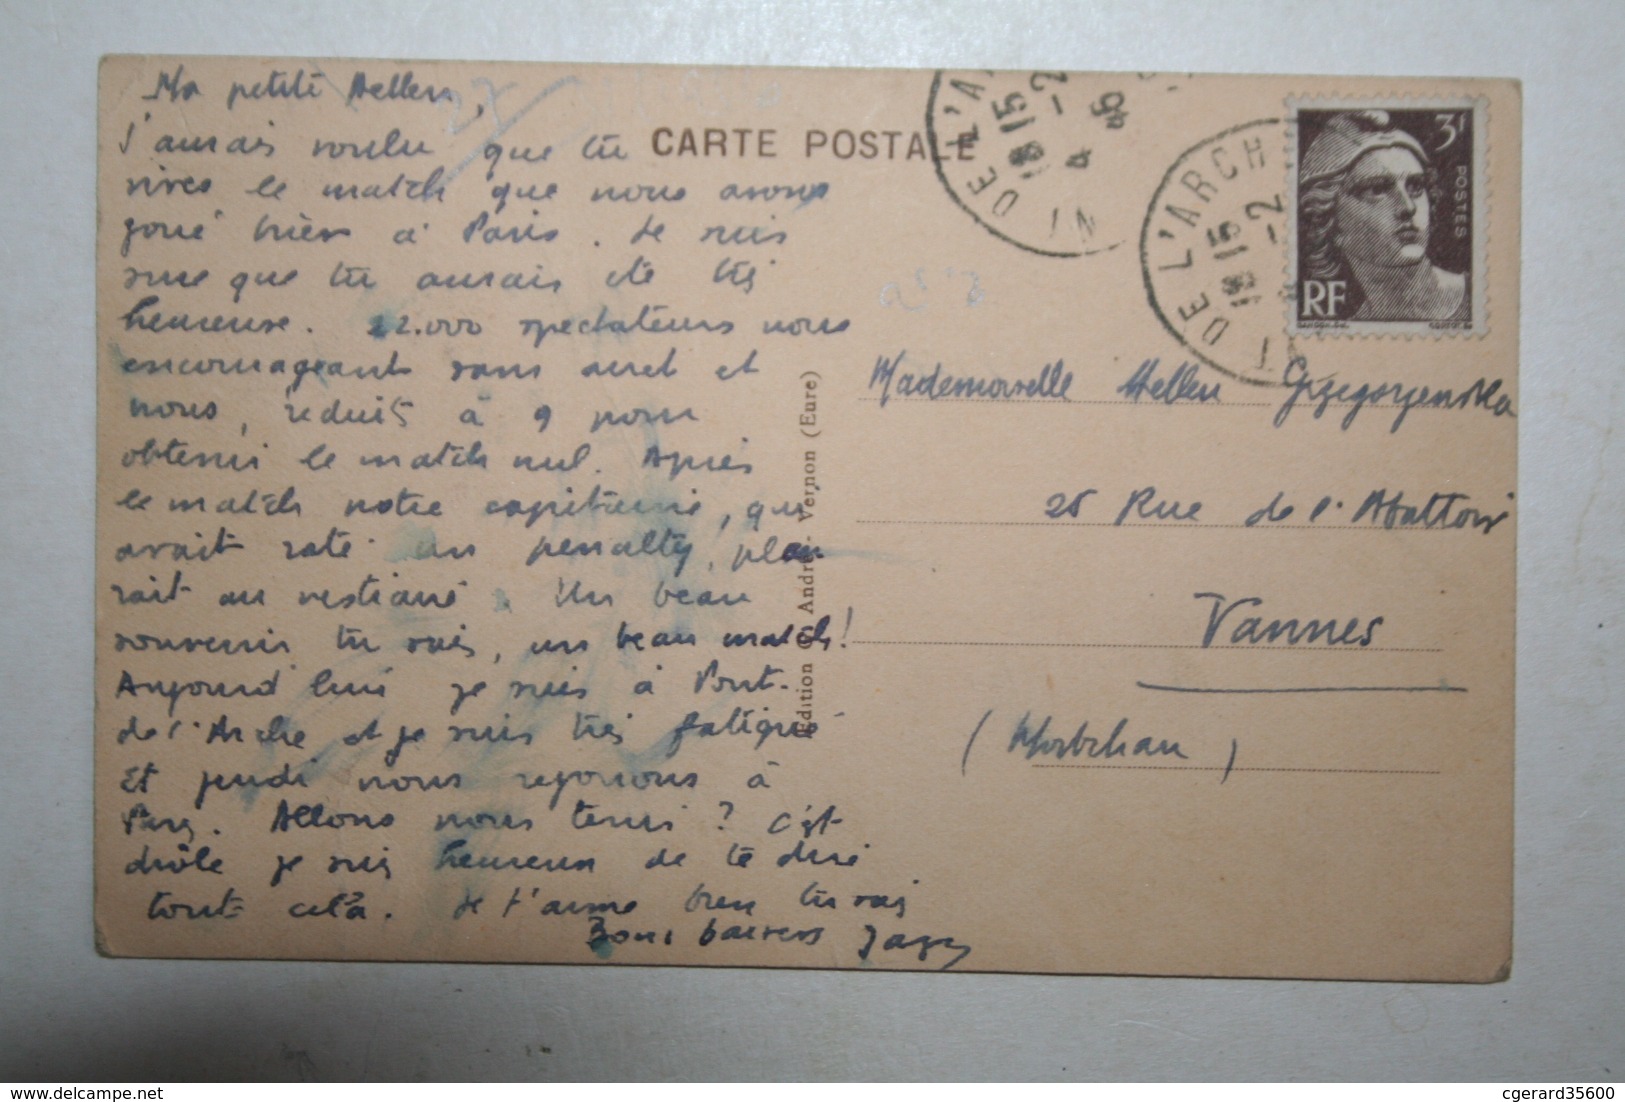 Ma petite Hellen,
J'aurais voulu que tu
vives le match que nous avons
joué hier à Paris. Je suis
sûre que tu aurais été très
heureuse. 22.000 spectateurs nous
encourageant sans arrêt et
nous, réduits à 9 pour
obtenir le match nul. Après
le match notre capitaine, qui
avait raté un penalty, pleu-
rait au vestiaire. Un beau
souvenir tu sais, un beau match!
Aujourd'hui je suis à Pont-
de l'Arche et je suis très fatigué
Et jeudi nous rejouons à
Paris. Allons nous tenir? C'est
drôle je suis heureux de te dire
tout cela. Je t'aime bien tu sais
Bons baisers
CARTE POSTALE
Edition André. Vernon (Eure)
DE L'ARCHE
18 15
-2
4 45
DE L'ARCH
18 15
-2
3f
POSTES
RF
Mademoiselle Hellen Grzegorzewska
25 Rue de l'Abattoir
Vannes
(Morbihan)
cgerard35600